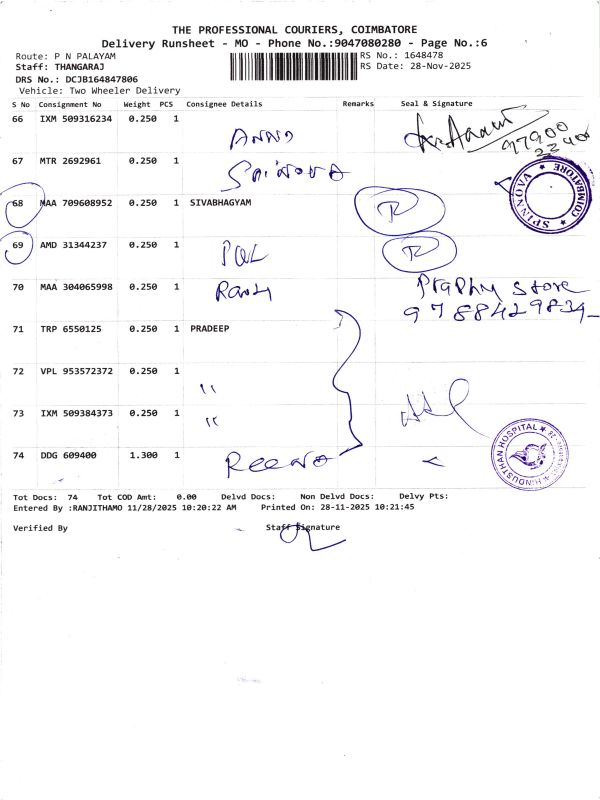 THE PROFESSIONAL COURIERS, COIMBATORE
Delivery Runsheet - MO - Phone No.:9047080280 - Page No.:6
Route: P N PALAYAM RS No.: 1648478
Staff: THANGARAJ RS Date: 28-Nov-2025
DRS No.: DCJB164847806
Vehicle: Two Wheeler Delivery
S No Consignment No Weight PCS Consignee Details Remarks Seal & Signature
66 IXM 509316234 0.250 1
97900
67 MTR 2692961 0.250 1
COIMBATORE
68 MAA 709608952 0.250 1 SIVABHAGYAM R
69 AMD 31344237 0.250 1 R
70 MAA 304065998 0.250 1 Ramy Praphy store
9788429834
71 TRP 6550125 0.250 1 PRADEEP
72 VPL 953572372 0.250 1 "
73 IXM 509384373 0.250 1 "
HINDUSTHAN HOSPITAL
74 DDG 609400 1.300 1
Tot Docs: 74 Tot COD Amt: 0.00 Delvd Docs: Non Delvd Docs: Delvy Pts:
Entered By :RANJITHAMO 11/28/2025 10:20:22 AM Printed On: 28-11-2025 10:21:45
Verified By Staff Signature